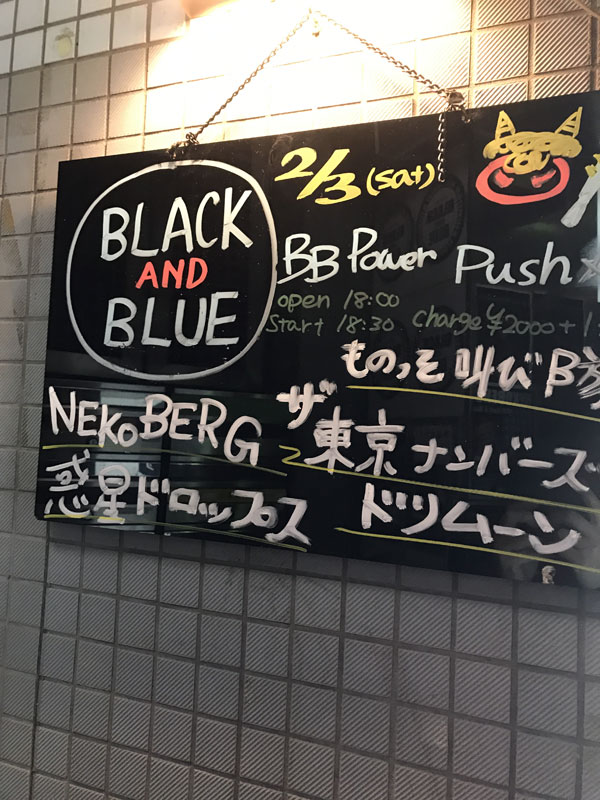 BLACK
AND
BLUE
2/3 (sat)
BB Power Push
open 18:00
Start 18:30 charge ¥2000+1
ものっそ叫びB
NEKOBERG
ザ東京ナンバーズ
惑星ドロップス
ドツムーン